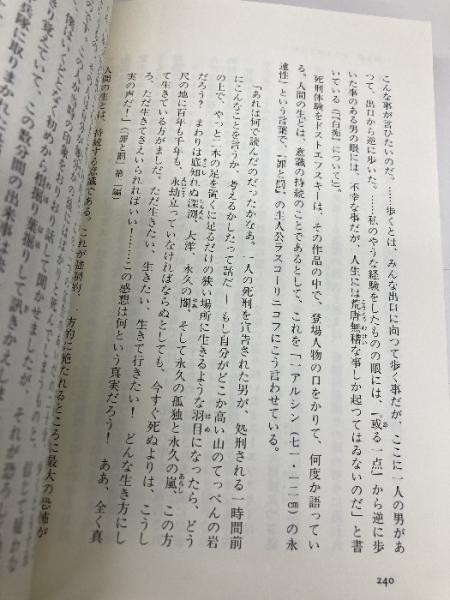 こんな事が言ひたいのだ。……歩くとは、みんな出口に向つて歩く事だが、ここに一人の男があ
つて、出口から逆に歩いた。……私のやうな経験をしたものの眼には、『或る一点』から逆に歩
いた事のある男の眼には、不幸な事だが、人生には荒唐無稽な事しか起つてはゐないのだ」と書
いている（「『白痴』について」）。
死刑体験をドストエフスキーは、その作品の中で、登場人物の口をかりて、何度か語ってい
る。人間の生とは、意識の持続のことであるとして、これを「一アルシン（七一・一二㎝）の永
遠性」という言葉で、『罪と罰』の主人公ラスコーリニコフにこう言わせている。
「あれは何で読んだのだったかなあ。一人の死刑を宣告された男が、処刑される一時間前
にこんなことを言うか、考えるかしたって話だ――もし自分がどこか高い山のてっぺんの岩
の上で、やっと二本の足を置くに足るだけの狭い場所に生きるような羽目になったら、どう
だろう？　まわりは底知れぬ深淵、大洋、永久の闇、そして永久の孤独と永久の嵐、この方
尺の地に百年も千年も、永劫立っていなければならぬとしても、今すぐ死ぬよりは、こうし
て生きている方がましだ。ただ生きたい、生きたい、生きて行きたい！　どんな生き方にし
ろ、ただ生きてさえいられればいい……この感想は何という真実だろう！　ああ、全く真
実の声だ！」（『罪と罰』第二編）
人間の生とは、持続する意識である。これが強制的、一方的に絶たれるところに最大の恐怖が
240